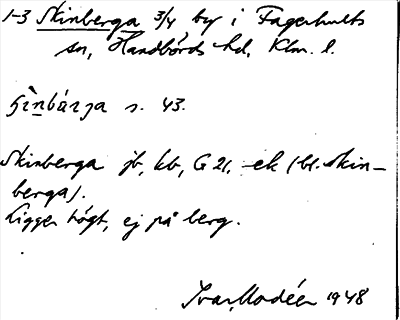 1-3 Skinberga 3/4 by i Fagerhults
sn, Handbörds hd, Klm. l.
s. 43.
Skinberga jb, kb, G 21, -ek (bl. Skin-
berga).
Ligger högt, ej på berg.
Ivar Modéer 1948